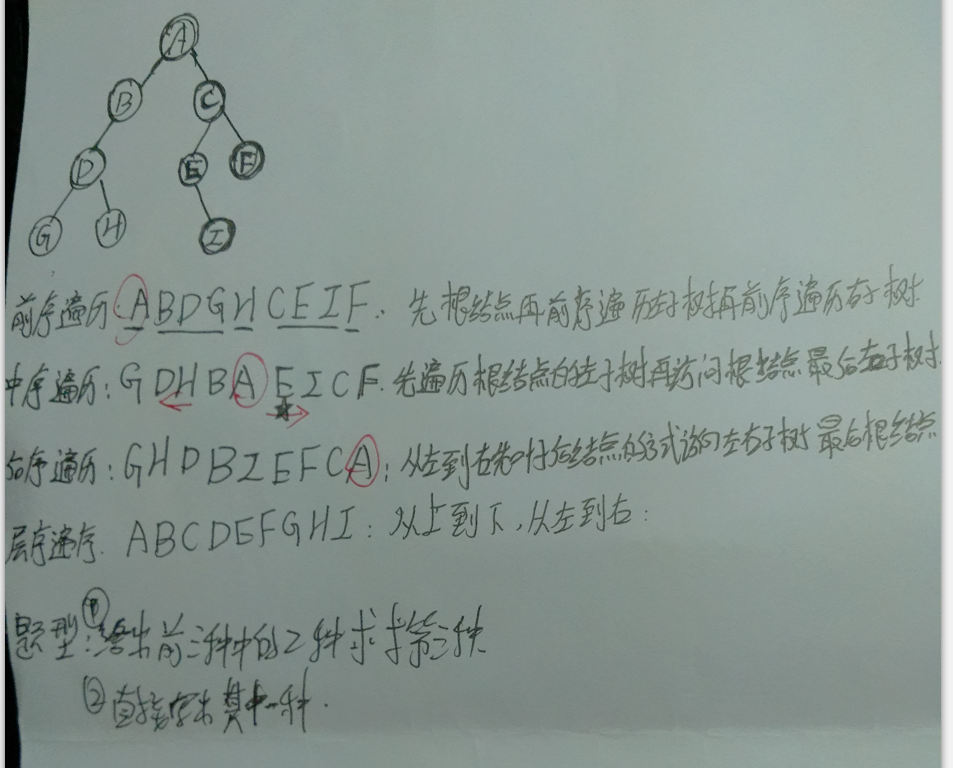 A
B C
D E F
G H I
前序遍历 ABDGHCEIF. 先根结点再前序遍历左子树再前序遍历右子树
中序遍历: GDHBAEICF. 先遍历根结点的左子树再访问根结点最后右子树.
后序遍历: GHDBIEFCA; 从左到右先叶后结点的方式访问左右子树 最后根结点
层序遍序. ABCDEFGHI: 从上到下, 从左到右:
题型: ①给出前三种中的2种求第三种
②直接写出其中一种.